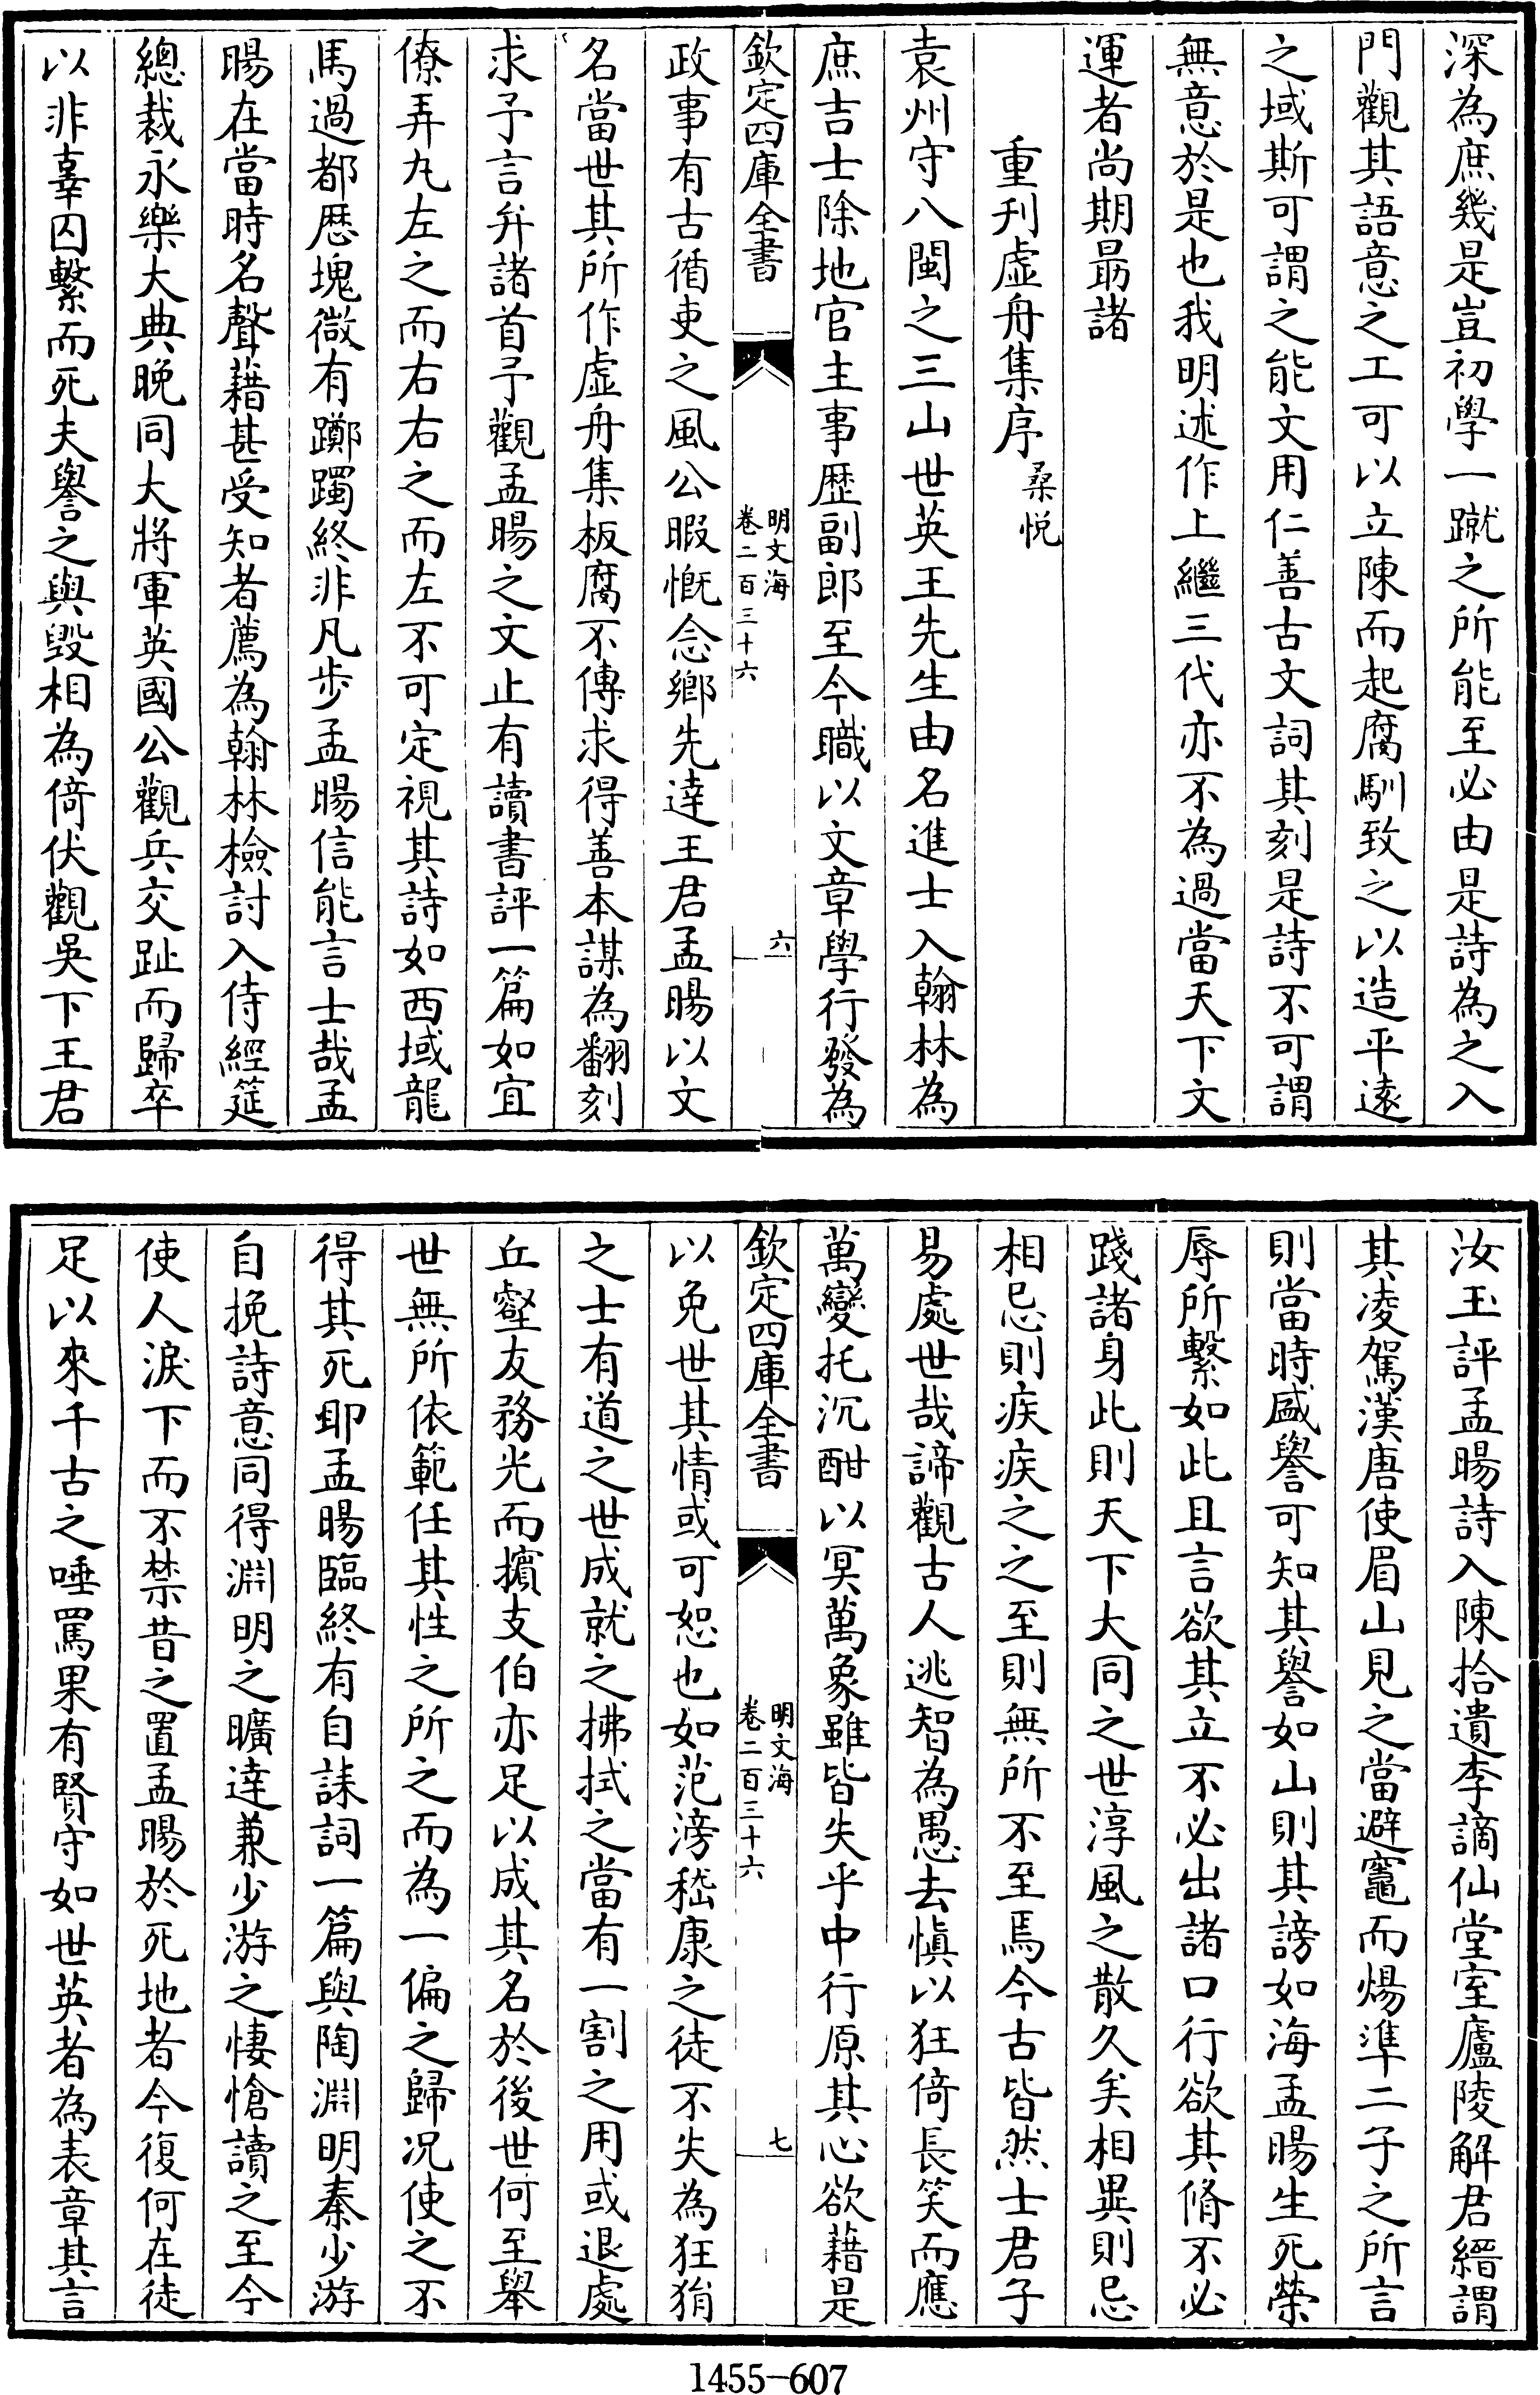 深為庶幾是豈初學一蹴之所能至必由是詩為之入
門觀其語意之工可以立陳而起腐馴致之以造平遠
之域斯可謂之能文用仁善古文詞其刻是詩不可謂
無意於是也我明述作上繼三代亦不為過當天下文
運者尚期勗諸
重刋虚舟集序 桑悦
袁州守八閩之三山世英王先生由名進士入翰林為
庶吉士除地官主事歴副郎至今職以文章學行發為
欽定四庫全書 明文海 卷二百三十六 六
政事有古循吏之風公暇慨念鄉先達王君孟暘以文
名當世其所作虚舟集板腐不傳求得善本謀為翻刻
求予言弁諸首予觀孟暘之文止有讀書評一篇如宜
僚弄丸左之而右右之而左不可定視其詩如西域龍
馬過都歴塊微有躑躅終非凡步孟暘信能言士哉孟
暘在當時名聲藉甚受知者薦為翰林檢討入侍經筵
總裁永樂大典晚同大將軍英國公觀兵交趾而歸卒
以非辜囚繫而死夫譽之與毁相為倚伏觀吳下王君
汝玉評孟暘詩入陳拾遺李謫仙堂室廬陵解君縉謂
其凌駕漢唐使眉山見之當避竈而煬準二子之所言
則當時盛譽可知其譽如山則其謗如海孟暘生死榮
辱所繫如此且言欲其立不必出諸口行欲其脩不必
踐諸身此則天下大同之世淳風之散久矣相異則忌
相忌則疾疾之之至則無所不至焉今古皆然士君子
易處世哉諦觀古人逃智為愚去愼以狂倚長笑而應
萬變托沉酣以冥萬象雖皆失乎中行原其心欲藉是
欽定四庫全書 明文海 卷二百三十六 七
以免世其情或可恕也如范滂嵇康之徒不失為狂狷
之士有道之世成就之拂拭之當有一割之用或退處
丘壑友務光而擯支伯亦足以成其名於後世何至舉
世無所依範任其性之所之而為一偏之歸况使之不
得其死耶孟暘臨終有自誄詞一篇與陶淵明秦少游
自挽詩意同得淵明之曠達兼少游之悽愴讀之至今
使人淚下而不禁昔之置孟暘於死地者今復何在徒
足以來千古之唾罵果有賢守如世英者為表章其言
1455-607